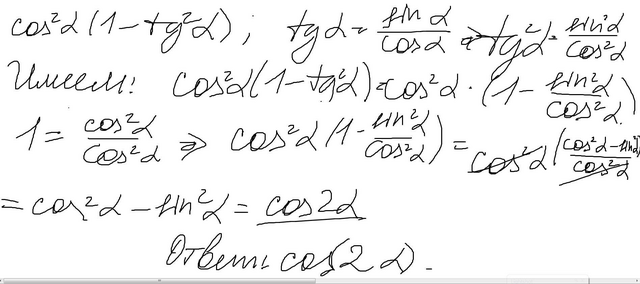 cos²α(1-tg²α); tgα = sinα/cosα ⇒ tg²α = sin²α/cos²α
Имеем: cos²α(1-tg²α) = cos²α · (1 - sin²α/cos²α)
1 = cos²α/cos²α ⇒ cos²α(1 - sin²α/cos²α) = cos²α(cos²α - sin²α/cos²α)
= cos²α - sin²α = cos2α
Ответ: cos(2α).